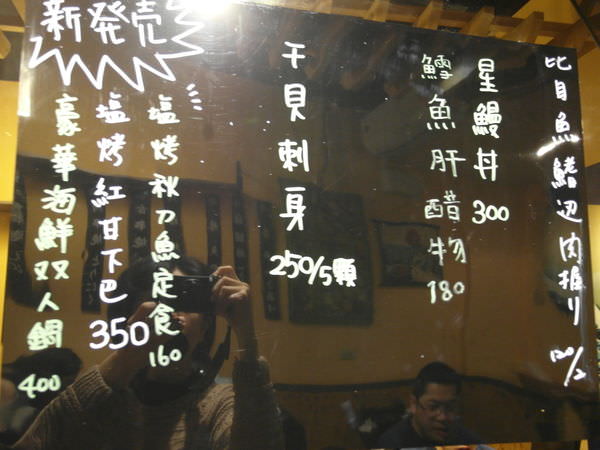 比目魚鰭辺肉握り 120/2
星鰻丼 300
鱈魚肝醋物 180
干貝刺身 250/5顆
新発売
塩烤秋刀魚定食 160
塩烤紅甘下巴 350
豪華海鮮双人鍋 400